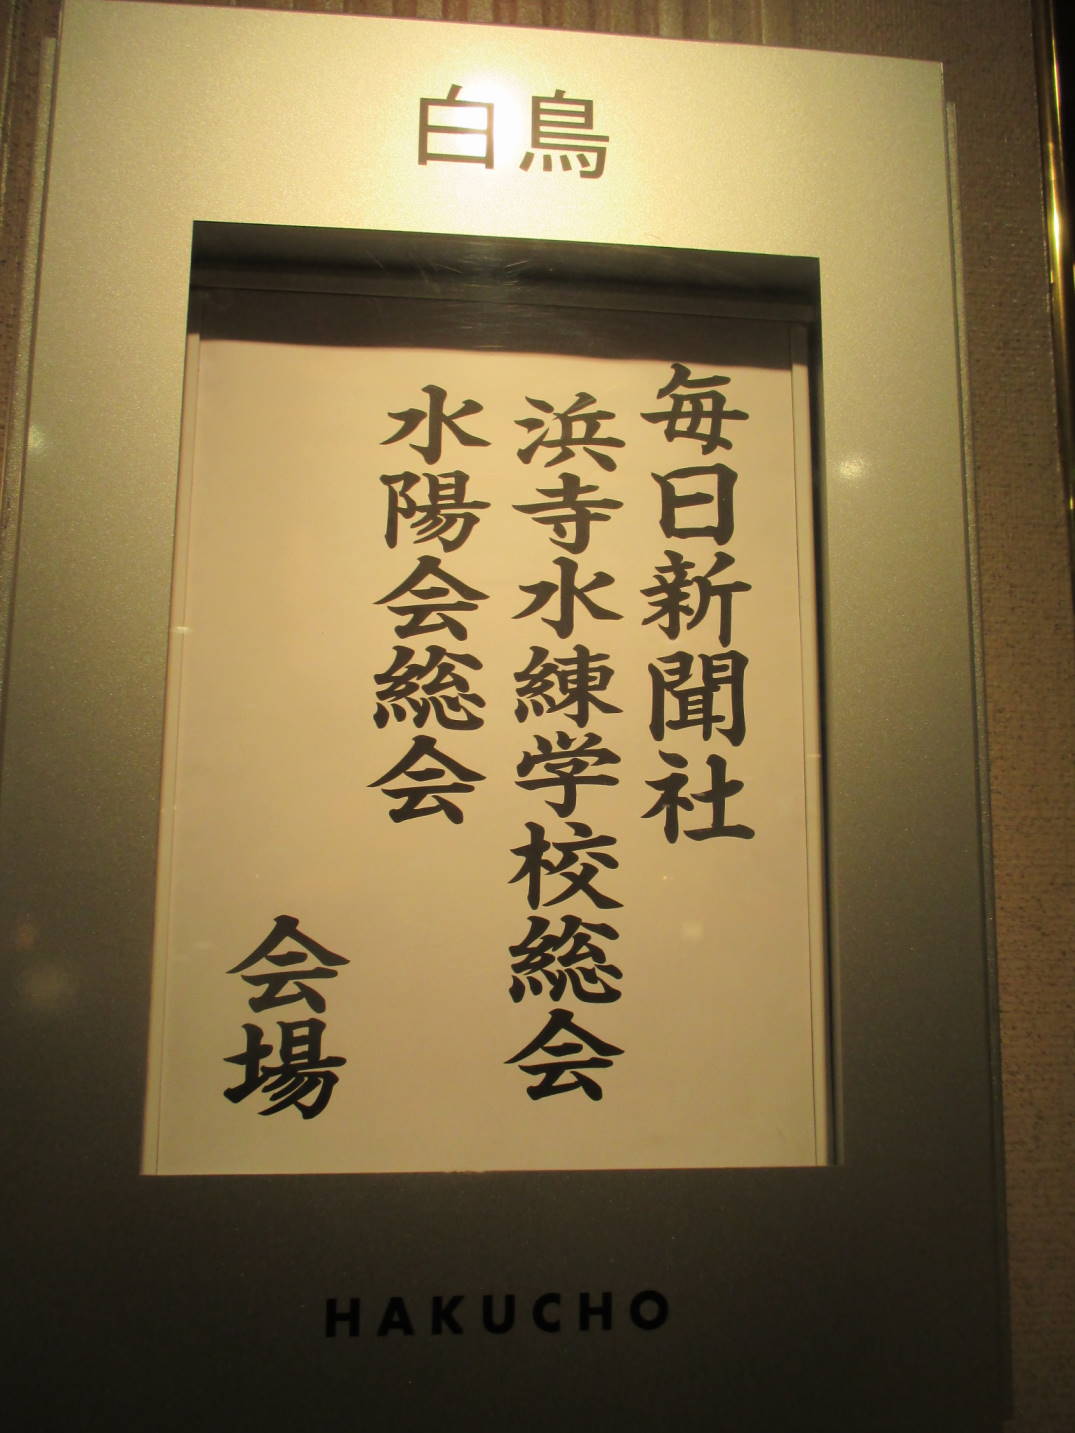 白鳥
毎日新聞社
浜寺水練学校総会
水陽会総会
会場
HAKUCHO